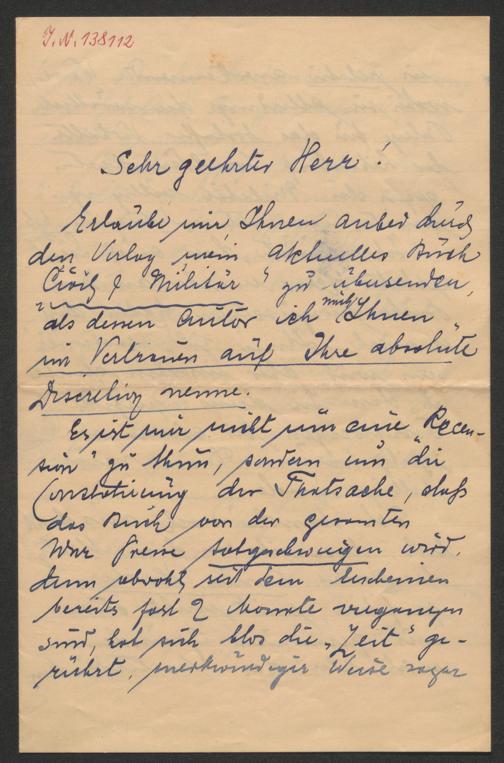 J.N. 138112
Sehr geehrter Herr!
Erlaube mir, Ihnen anbei durch
den Verlag mein aktuelles Buch
„Civil & Militär" zu übersenden,
als dessen Autor ich mich Ihnen
im Vertrauen auf Ihre absolute
Discretion nenne.
Es ist mir nicht um eine „Recen-
sion" zu thun, sondern um die
Constatirung der Thatsache, daß
das Buch von der gesamten
Wnr Presse todgeschwiegen wird.
Denn obwohl seit dem Erscheinen
bereits fast 2 Monate vergangen
sind, hat sich blos die „Zeit" ge-
rührt, merkwürdiger Weise sogar